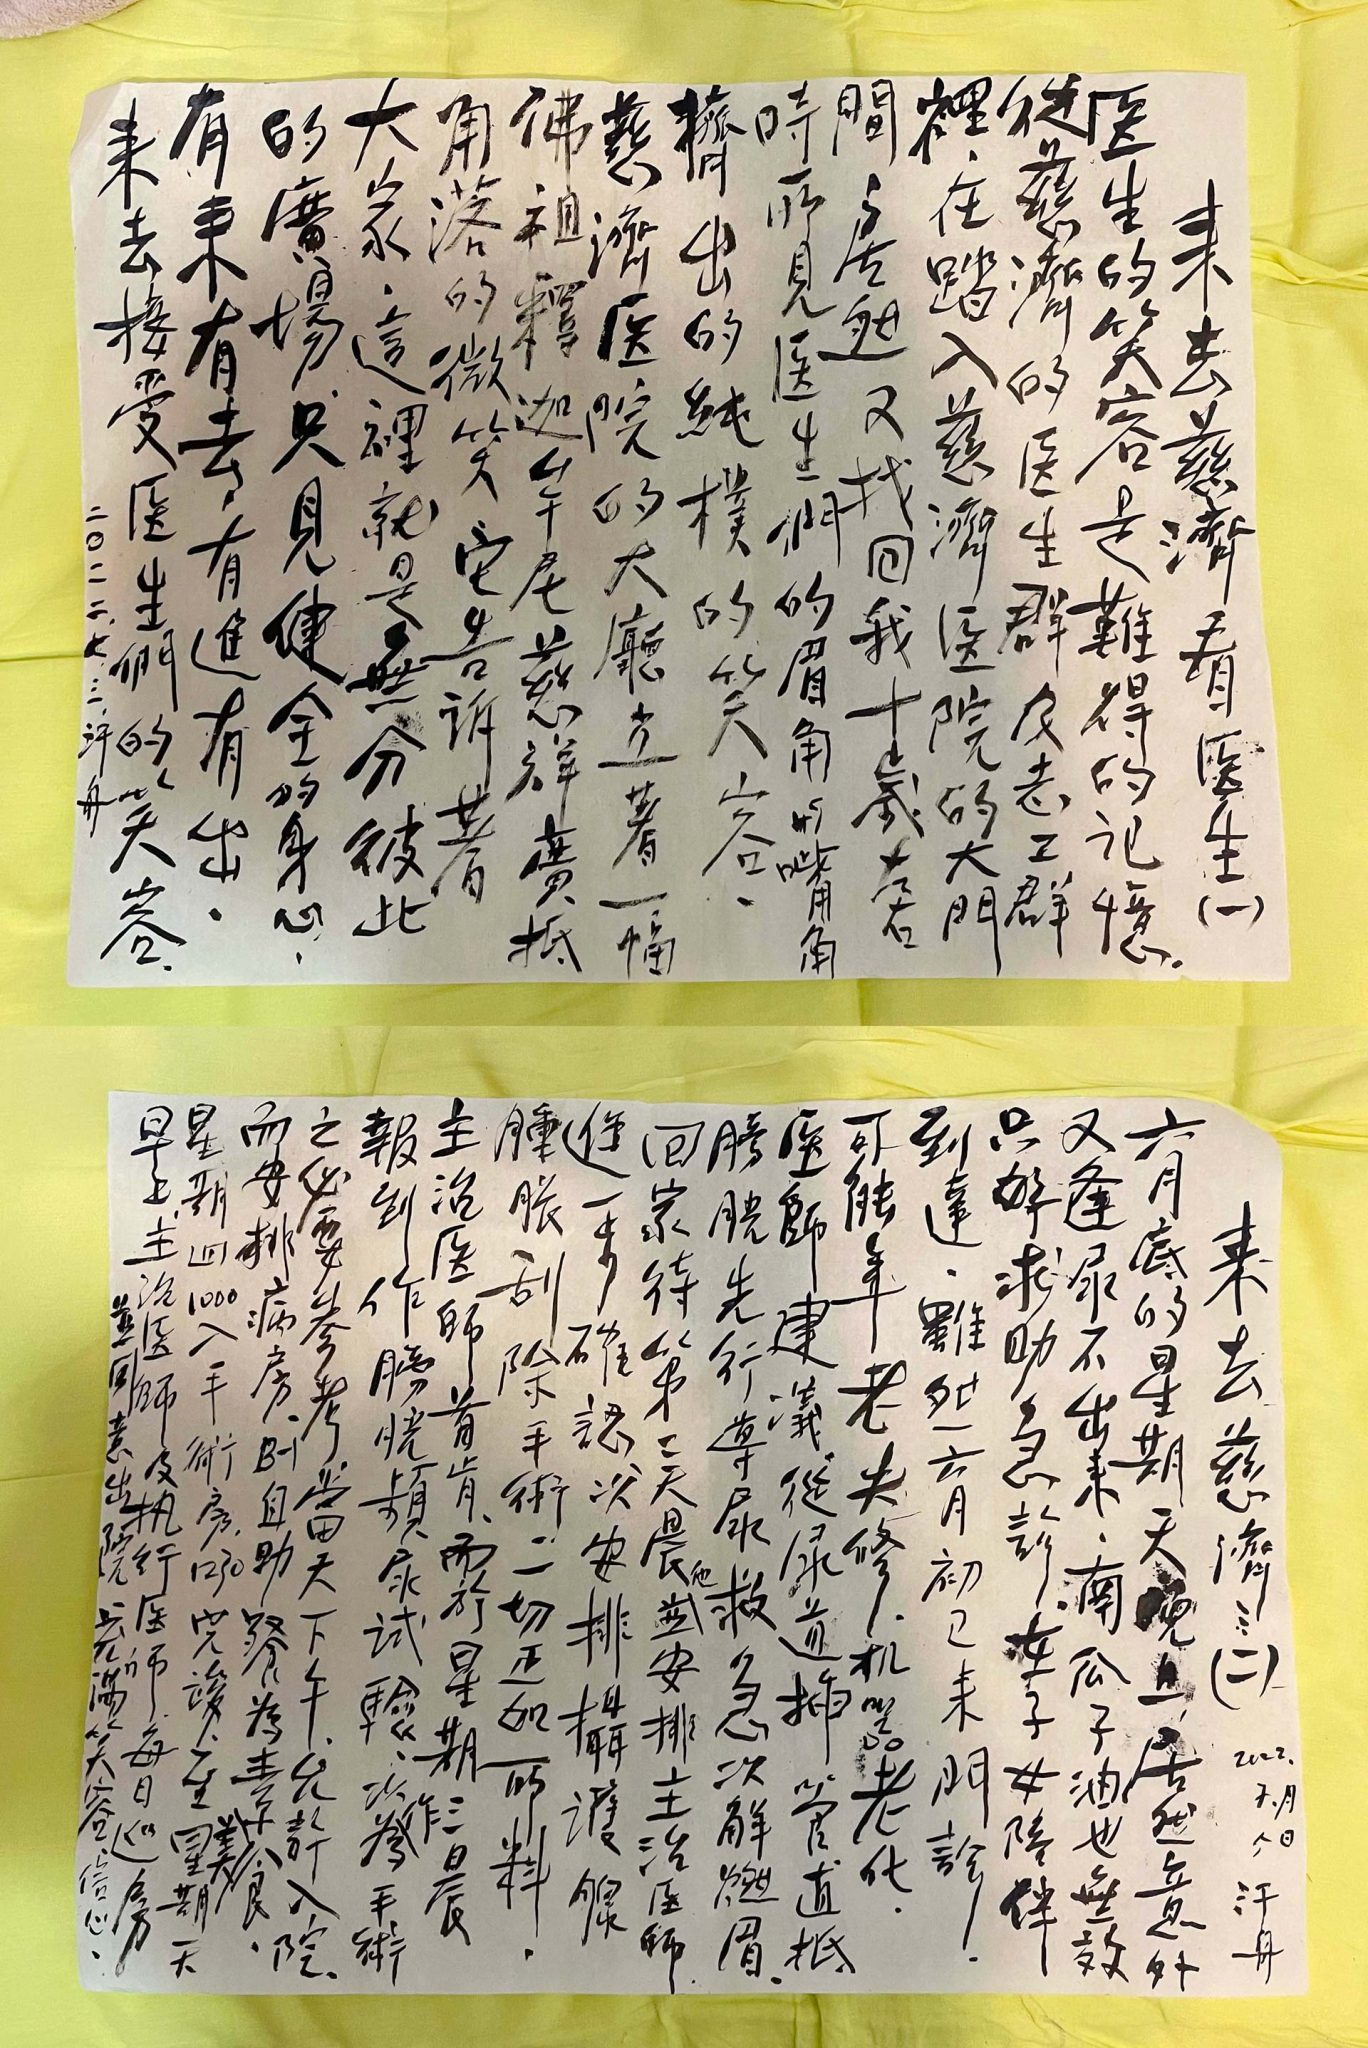 来去慈濟看医生(一)
医生的笑容是難得的记憶.
從慈濟的医生群及志工群
裡.在踏入慈濟医院的大門
間.居然又找回我十歲左右
時所見医生們的眉角嘴角
擠出的純樸的笑容.
慈濟医院的大廳立著一幅
佛祖釋迦牟尼慈祥廣抵
角落的微笑它告訴著
大家.這裡就是無分彼此
的廣場.只見健全的身心.
有来有去.有進有出.
来去接受医生們的笑容.
二〇二二.七.三.汗舟
来去慈濟(二)
2022.7.月 日 汗舟
六月底的星期天晚上居然意外
又逢尿不出来.南瓜子油也無效
只好求助急診.在子女陪伴
到達.雖然六月初已来門診.
可能年老失修.机器老化.
医師建議從尿道插管直抵
膀胱先行導尿救急次解燃眉.
回家待第二天晨她並安排主治医師
進一步確認次安排攝護腺
腫脹刮除手術.一切正如所料.
主治医師首肯.而於星期三晨
報到作膀胱頻尿試驗.次為手術
之必要參考.當天下午.允許入院.
而安排病房.則自助餐為素食.
星期四1000入手術房.1230完竣.至星期天
早上.主治医師及执行医師每日巡房
並同意出院充滿笑容信心.